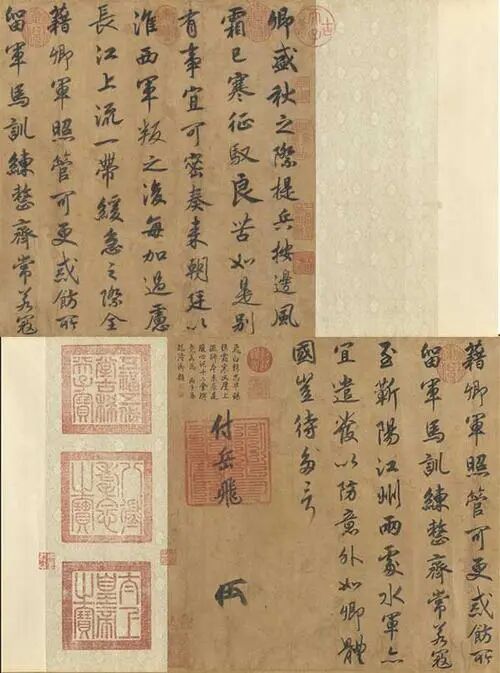 卿盛秋之際提兵按邊風
霜已寒征馭良苦如是別
有事宜可密奏來朝廷以
淮西軍叛之後每加過慮
長江上流一帶緩急之際全
藉卿軍照管可更戒飭所
留軍馬訓練整齊常若寇
藉卿軍照管可更戒飭所
留軍馬訓練整齊常若寇
至蘄陽江州兩處水軍亦
宜遣發以防意外如卿體
國豈待多言
付岳飛
五福五代堂古稀天子寶
八徵耄念之寶
太上皇帝之寶